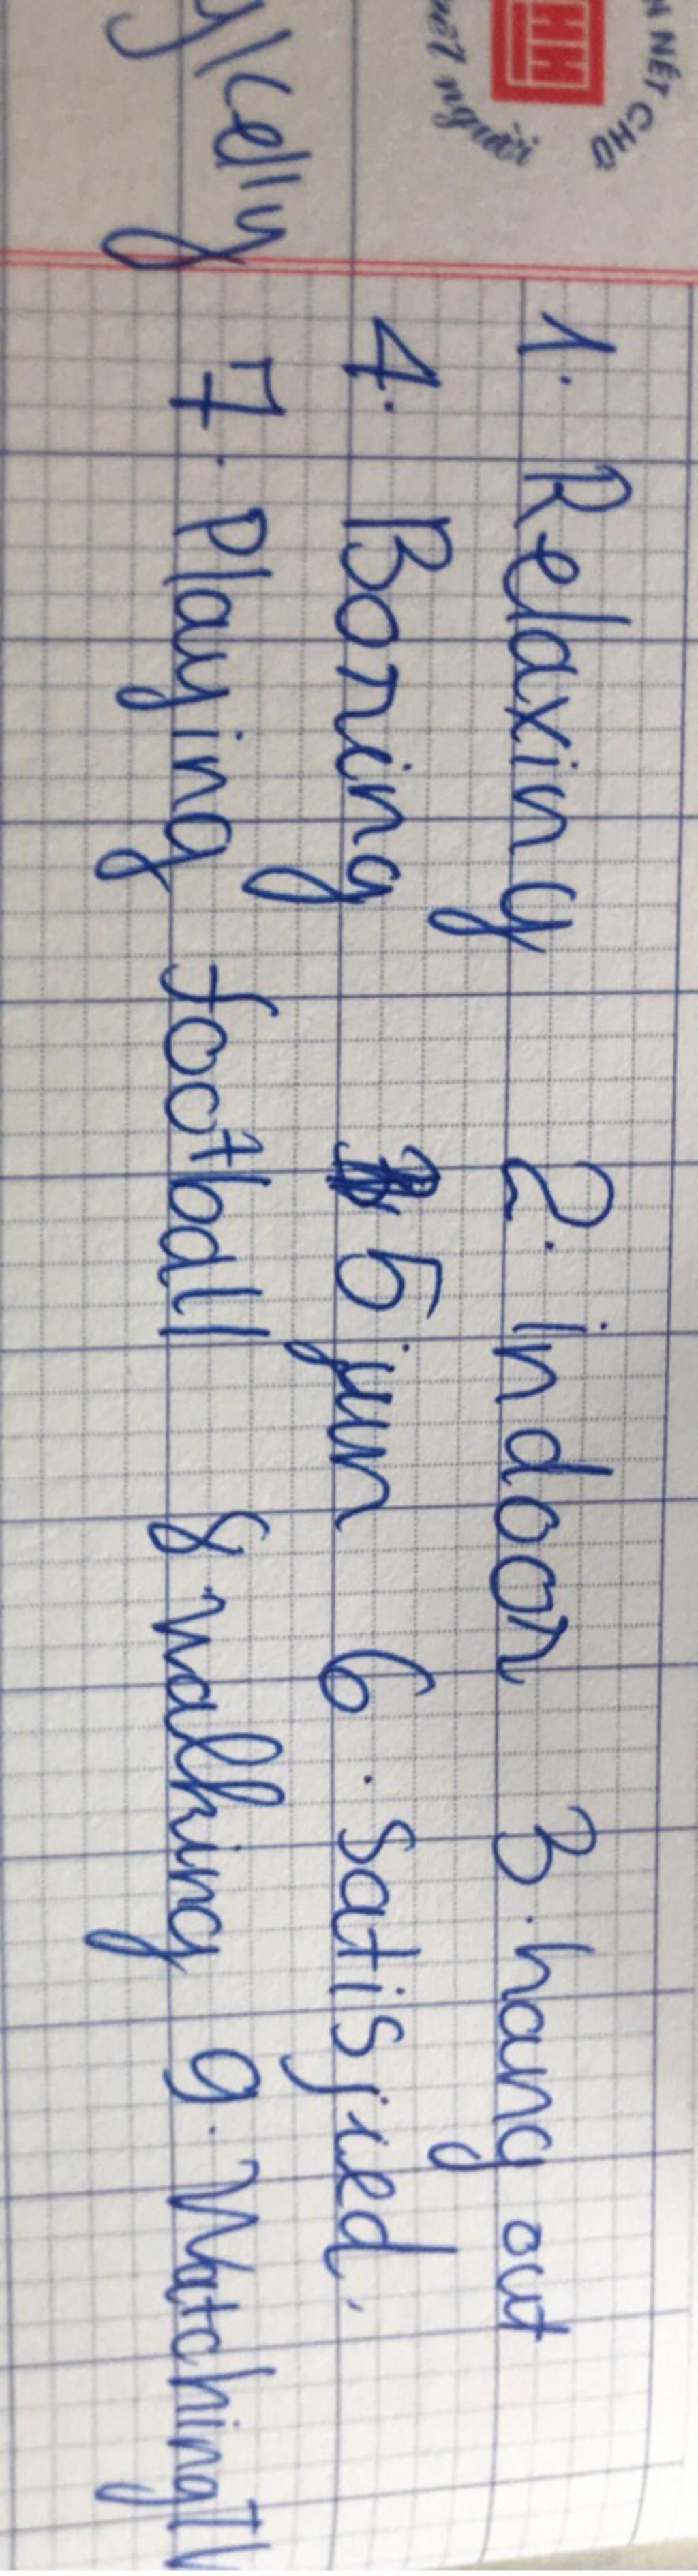 N NÉT CHỮ
HH
nết người
y/Celly
1. Relaxing 2. indoor 3. hang out
4. Boring 5 jun 6. satisjied.
7. Playing football 8 walking 9. Watching TV